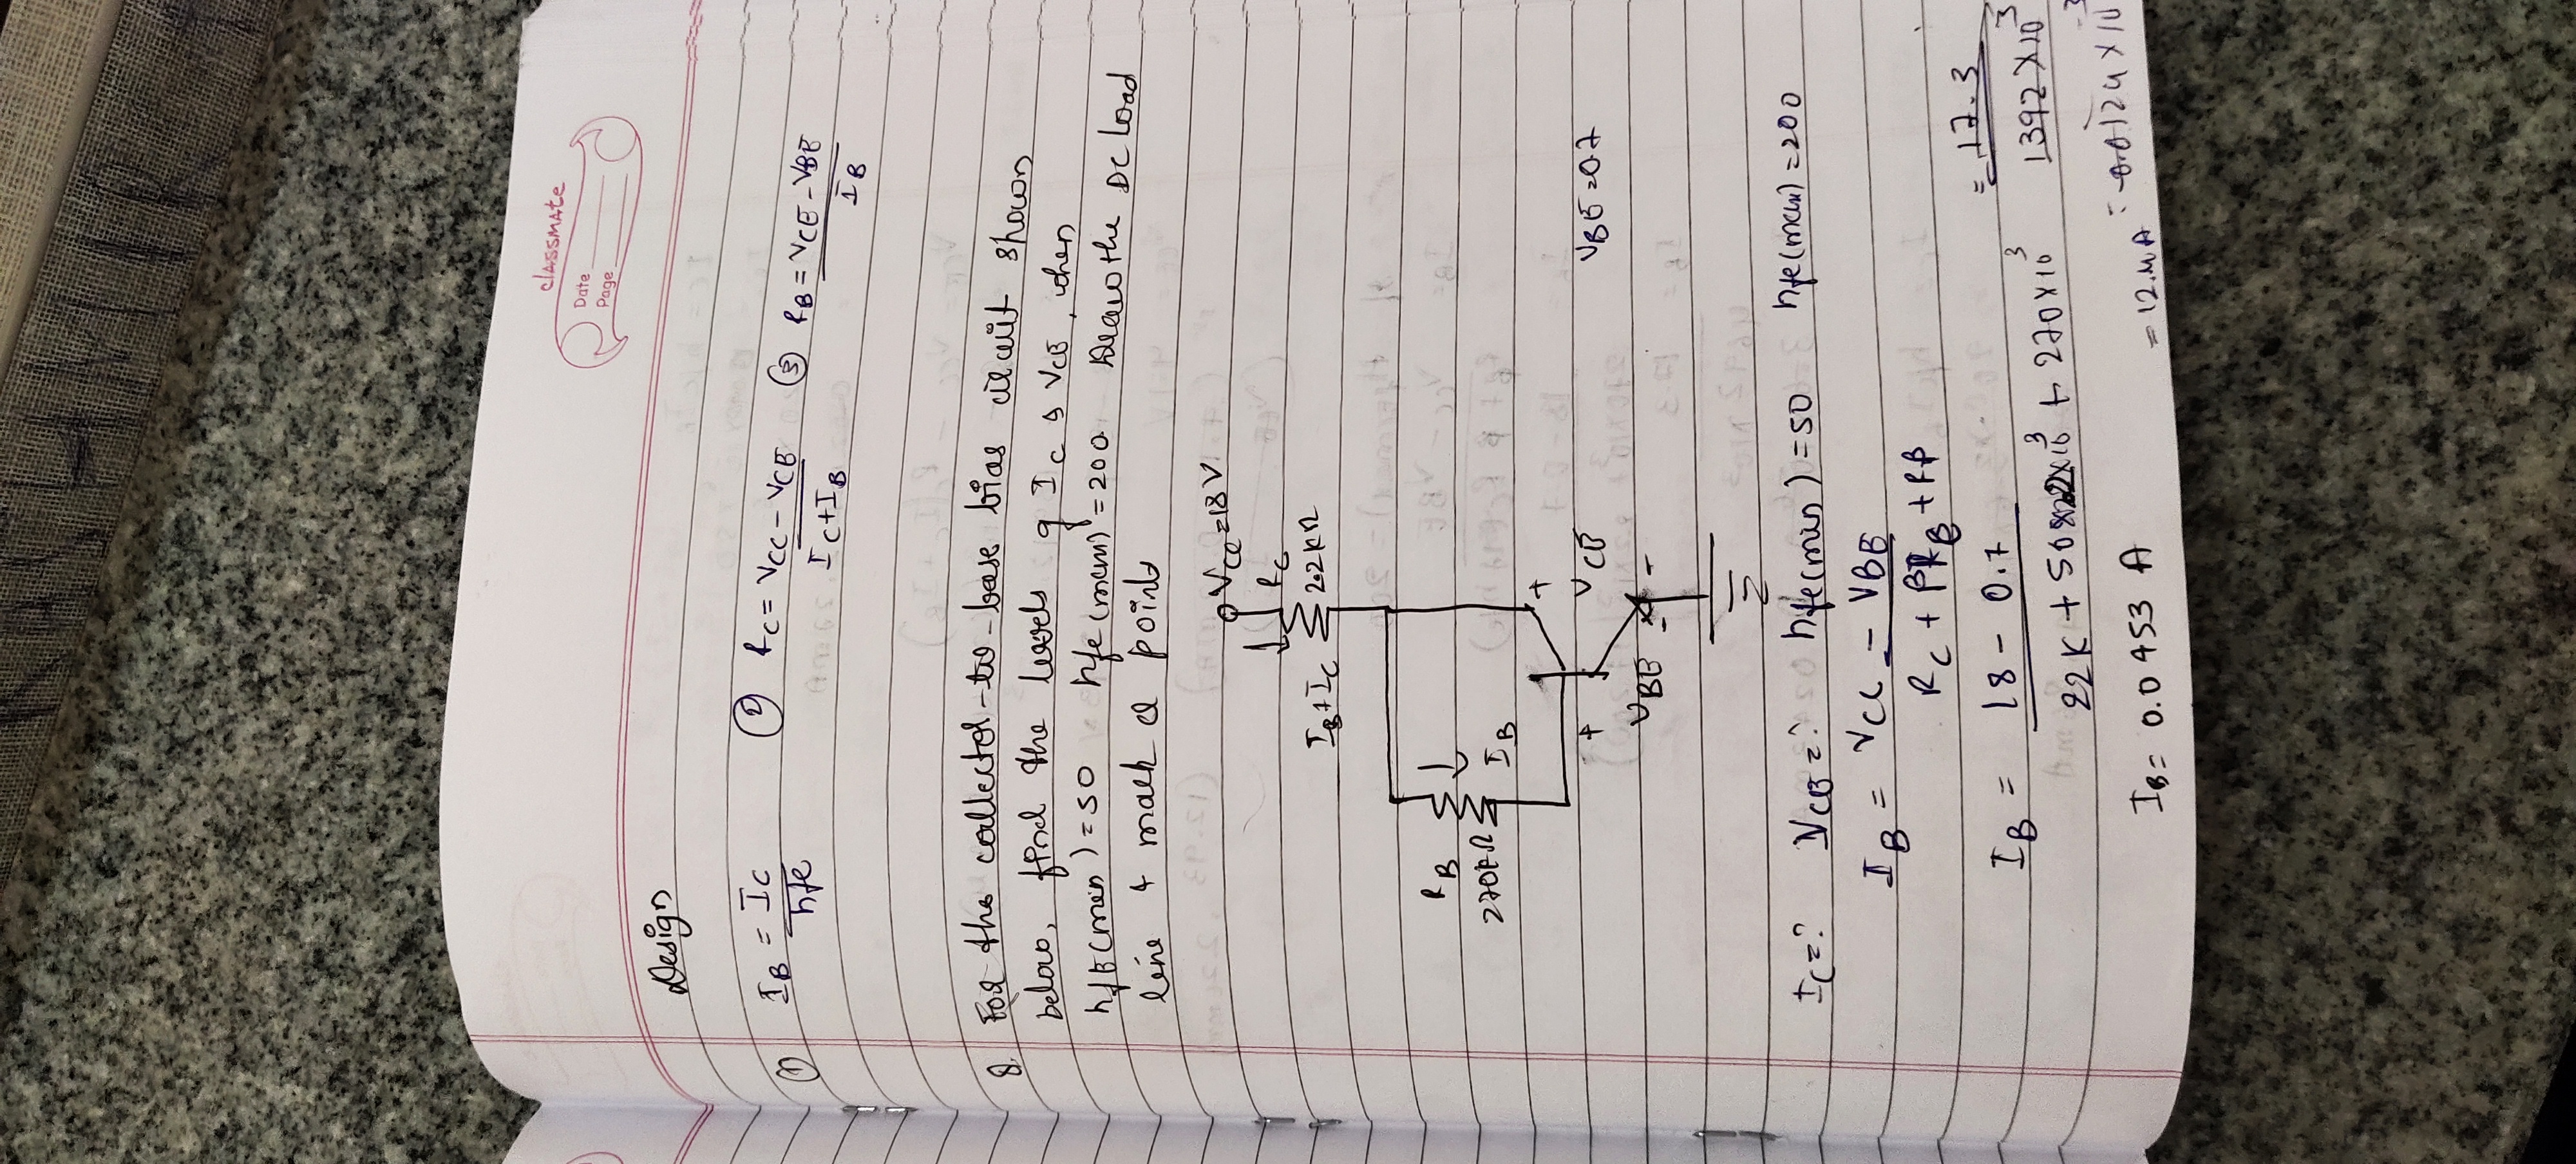 KASHMIR
classmate
Date
Page
Design
① IB = IC / hfe ② RC = VCC - VCE / IC + IB ③ RB = VCE - VBE / IB
Q. For the collector-to-base bias circuit shown
below, find the levels of IC & VCE, when
hfE(min) = 50 hfe(max) = 200. Draw the DC load
line & mark Q point
VCC = 18 V.
RC
IB + IC 2.2KΩ
RB
270KΩ IB
+
+ VCE
VBE = 0.7
VBE - -
IC = ? VCE = ? hfe(min) = 50 hfe(max) = 200
IB = VCC - VBE / RC + βRB + RB
IB = 18 - 0.7 / 22K + 50 × 22 × 10³ + 270 × 10³ = 17.3 / 1392 × 10³
IB = 0.0453 A = 12.4A = 0.0124 × 10⁻³